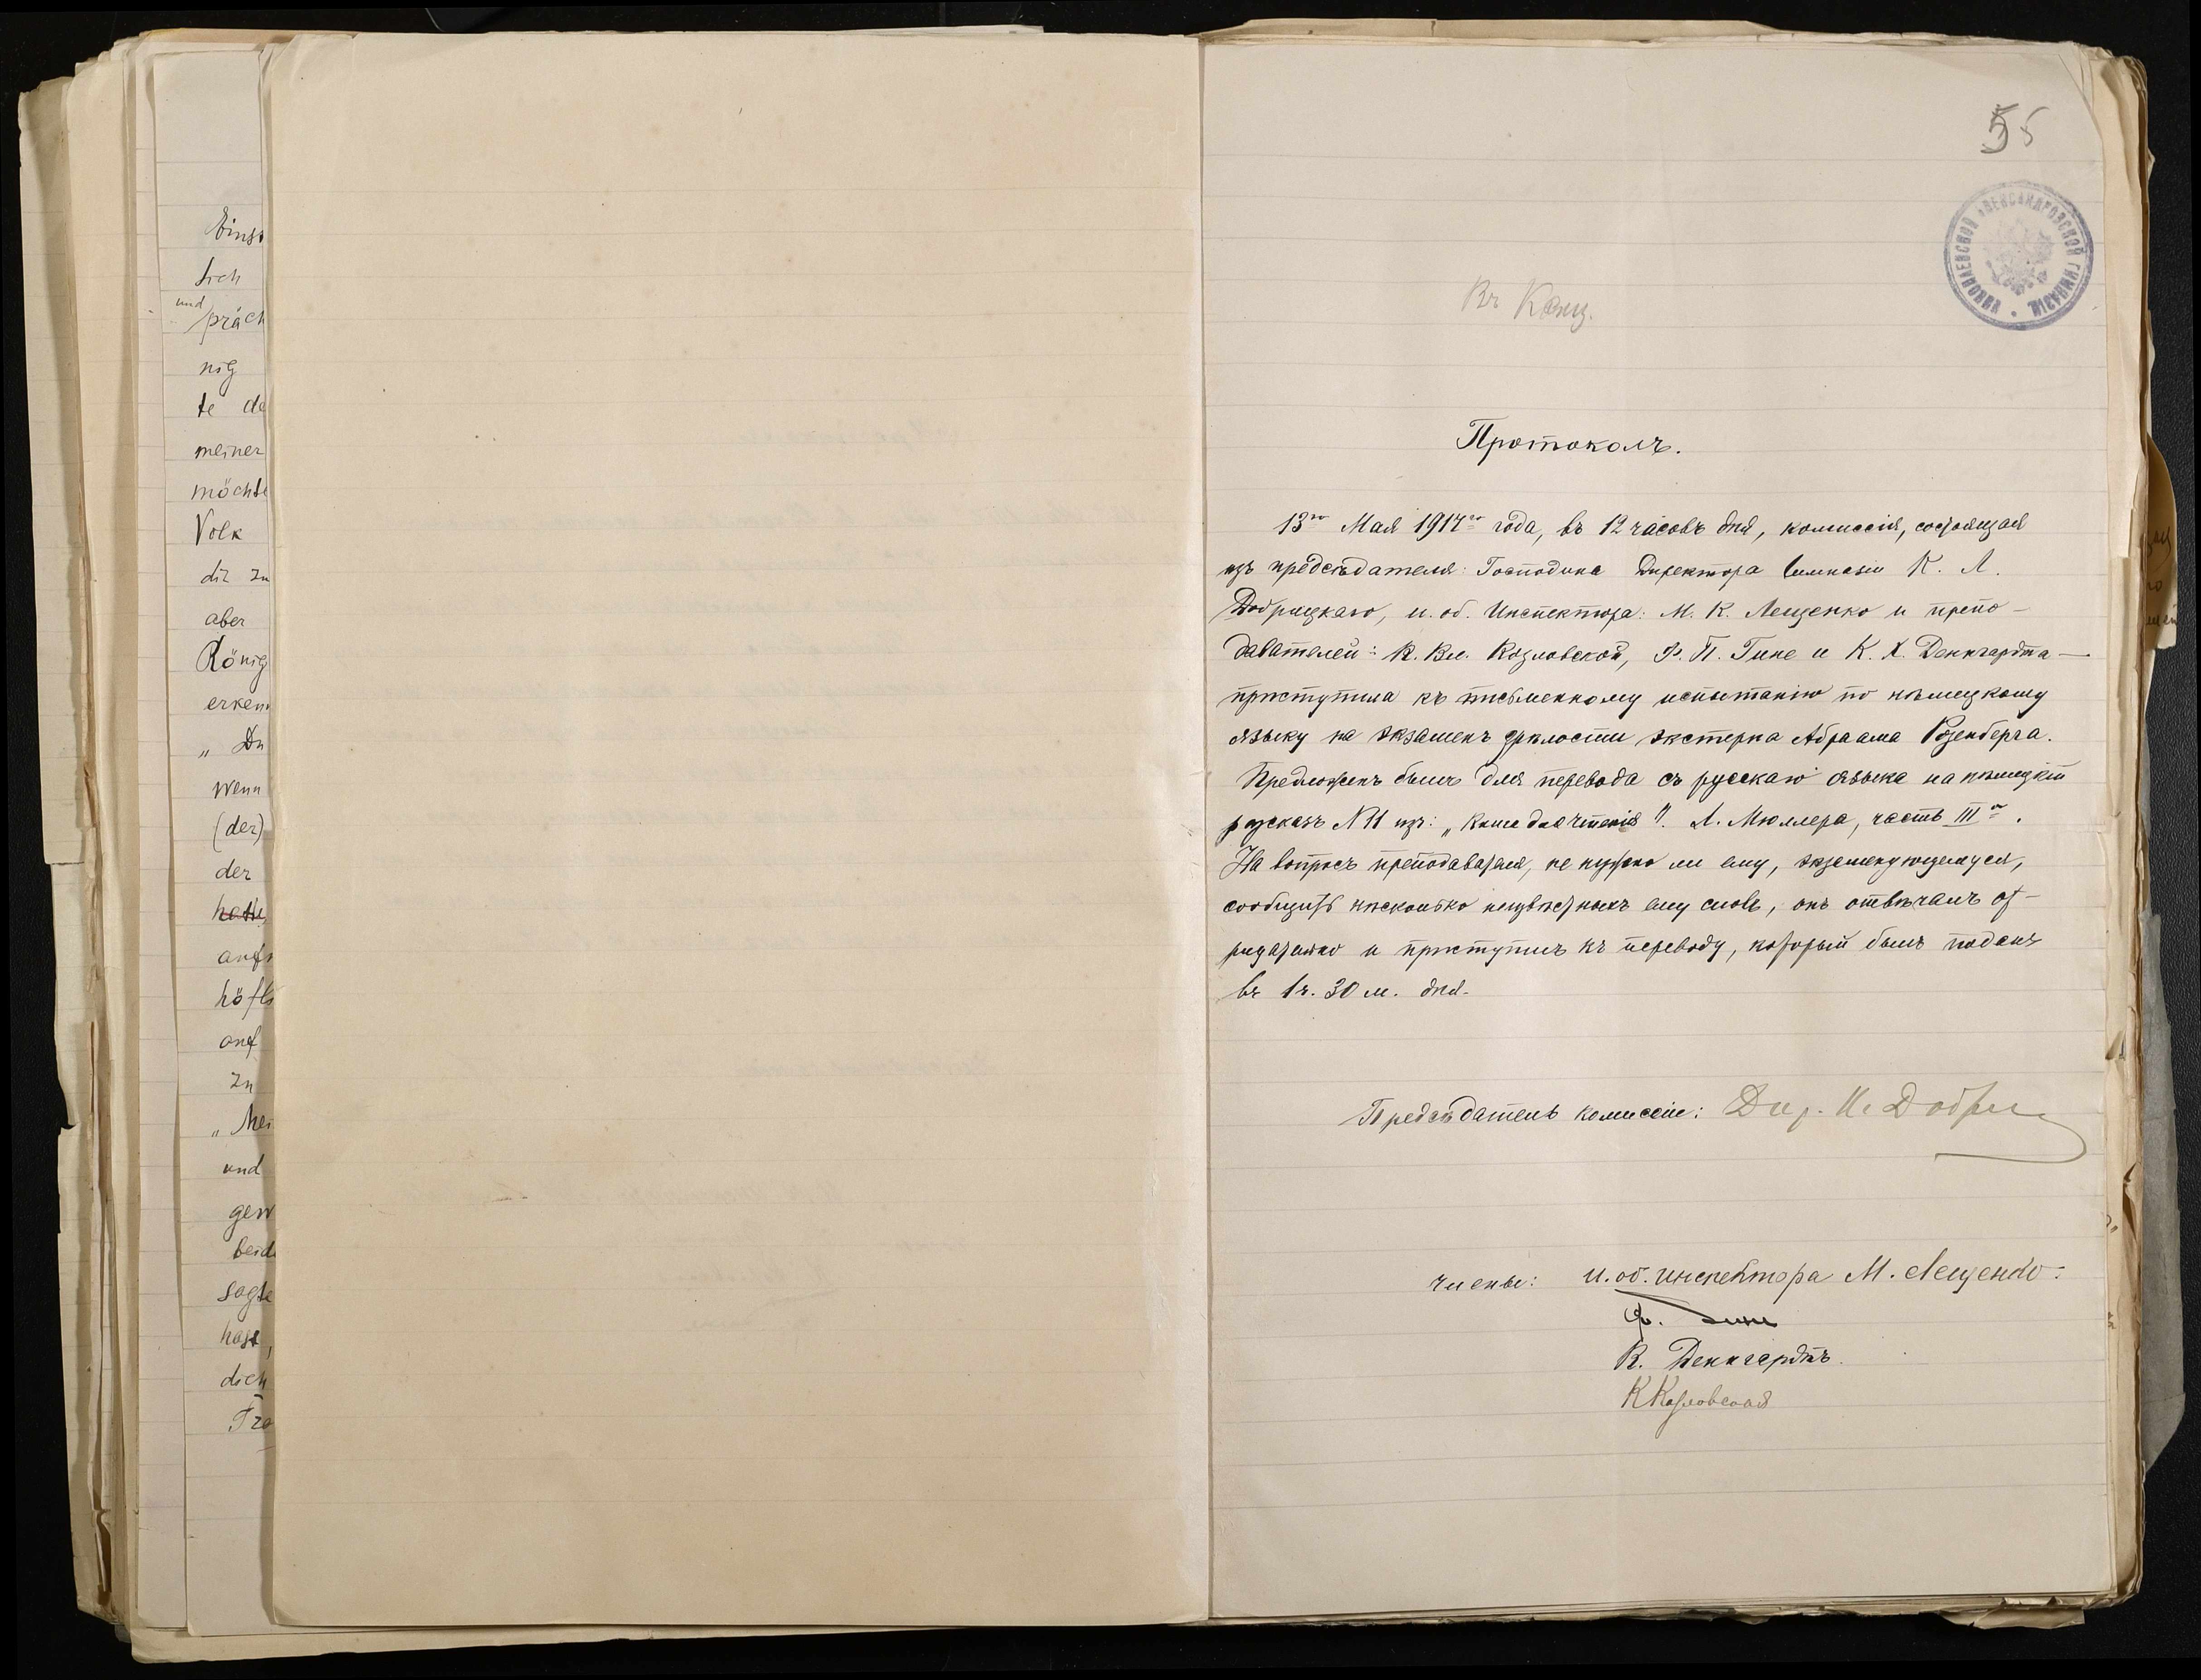 Einst
sich
und präch
nig
te de
meiner
möchte
Volk
dir zu
aber
König
erken
„ Du
wenn
(der)
der
hatte
auf
höfli
auf
zu
„ Mei
und
gew
beid
sagte
hast,
dich
Tra
55
НИКОЛАЕВСКОЙ АЛЕКСАНДРОВСКОЙ ГИМНАЗІИ
Въ Канц.
Протоколъ.
13го Мая 1914го года, въ 12 часовъ дня, комиссія, состоящая
изъ предсѣдателя: Господина Директора Гимназіи К. Л.
Добрицкаго, и. об. Инспектора: М. К. Лещенко и препо-
давателей: К. Вл. Козловской, Ф. П. Гине и К. Х. Денгардта —
приступила къ письменному испытанію по нѣмецкому
языку на экзаменъ зрѣлости экстерна Абраама Розенберга.
Предложенъ былъ для перевода съ русскаго языка на нѣмецкій
разсказъ № 11 изъ: „Книга для чтенія". А. Мюллера, часть III.
На вопросъ преподавателя, не нужно ли ему, экзаменующемуся,
сообщить нѣсколько неизвѣстныхъ ему словъ, онъ отвѣчалъ от-
рицательно и приступилъ къ переводу, который былъ поданъ
въ 1 ч. 30 м. дня.
Предсѣдатель комиссіи: Дир. К. Добри
Члены: И. об. инспектора М. Лещенко.
Ф. Гине
К. Денгардтъ.
К Козловская